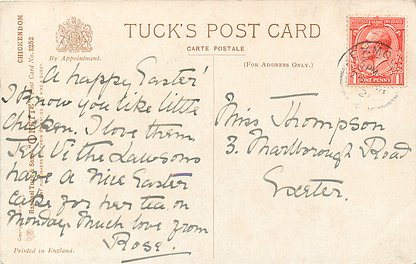 TUCK'S POST CARD
CARTE POSTALE
By Appointment.
(FOR ADDRESS ONLY.)
CHICKENDOM
Post Card No. 3252
A happy Easter
I know you like little
chicken. I love them
Tell Vi the Lawsons
have a nice Easter
cake for her tea on
Monday. Much love from
Rose.
Printed in England.
Miss Thompson
3. Marlborough Road
Exeter.
ONE PENNY